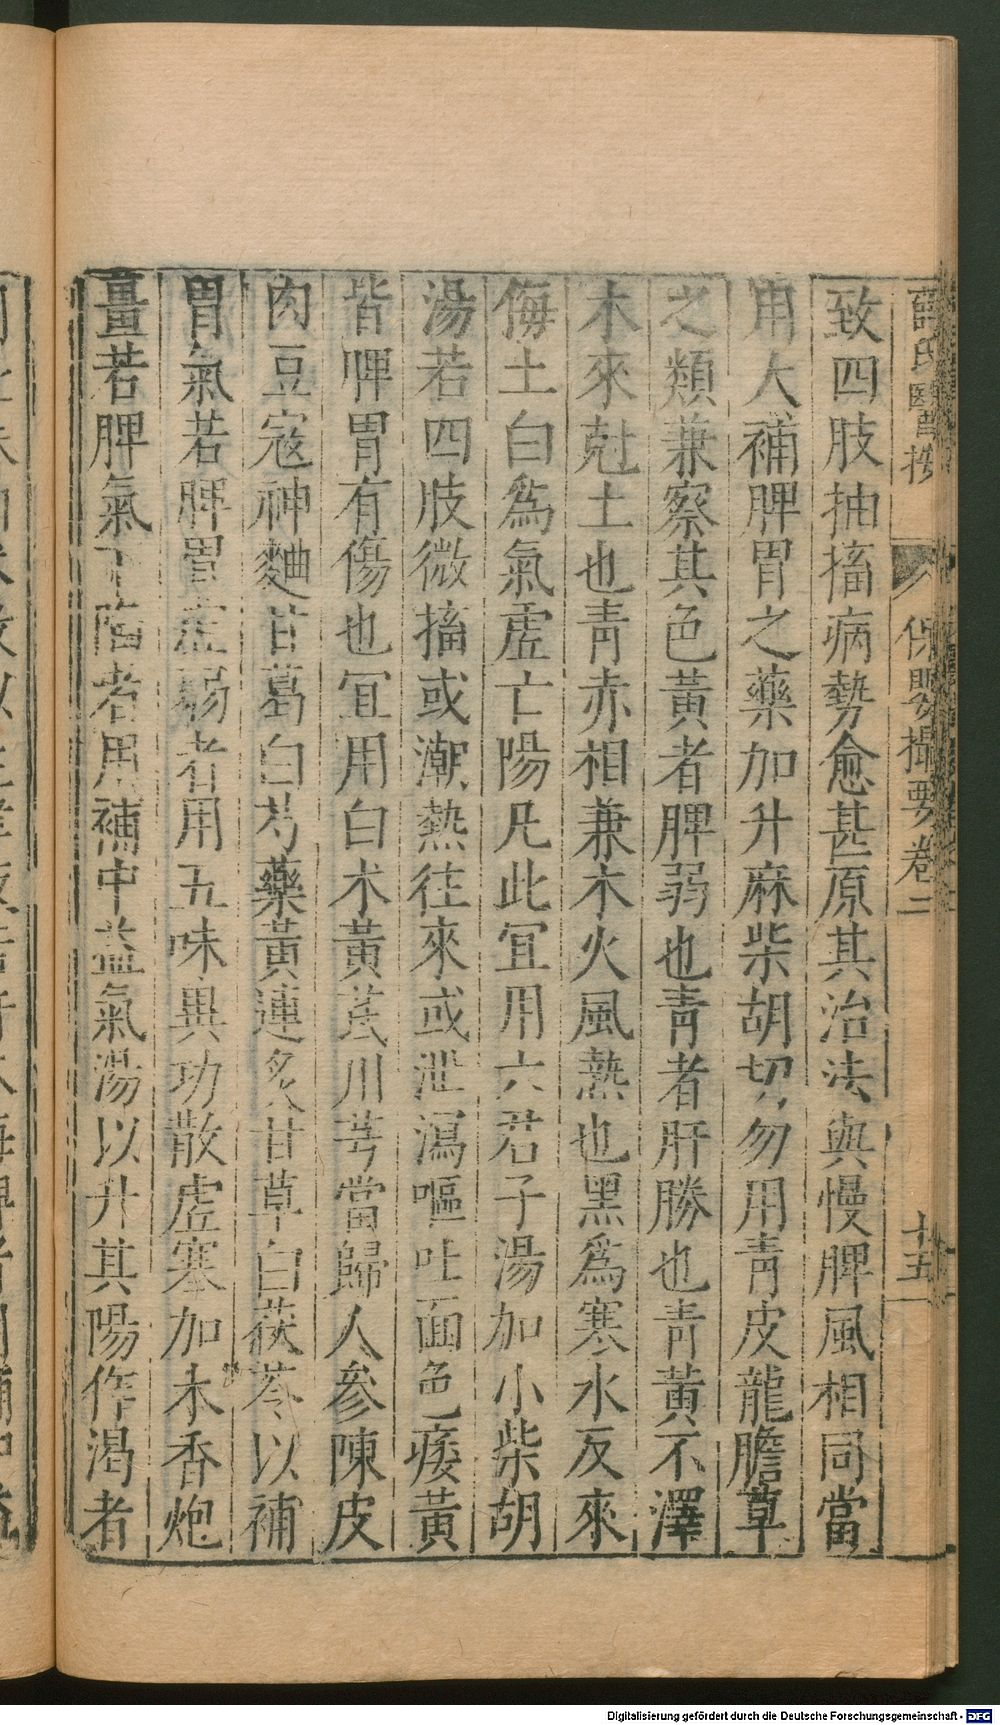 薛氏醫按 保嬰撮要卷二 十五
致四肢抽搐病勢愈甚原其治法與慢脾風相同當
用人補脾胃之藥加升麻柴胡切勿用青皮龍膽草
之類兼察其色黃者脾弱也青者肝勝也青黃不澤
木來尅土也青赤相兼木火風熱也黑爲寒水反來
侮土白爲氣虛亡陽凡此冝用六君子湯加小柴胡
湯若四肢微搐或潮熱往來或泄瀉嘔吐面色痿黃
皆脾胃有傷也冝用白朮黃芪川芎當歸人參陳皮
肉豆寇神麯甘葛白芍藥黃連炙甘草白茯苓以補
胃氣若脾胃虛弱者用五味異功散虛寒加木香炮
薑若脾氣下陷者用補中益氣湯以升其陽作渴者
Digitalisierung gefördert durch die Deutsche Forschungsgemeinschaft - DFG